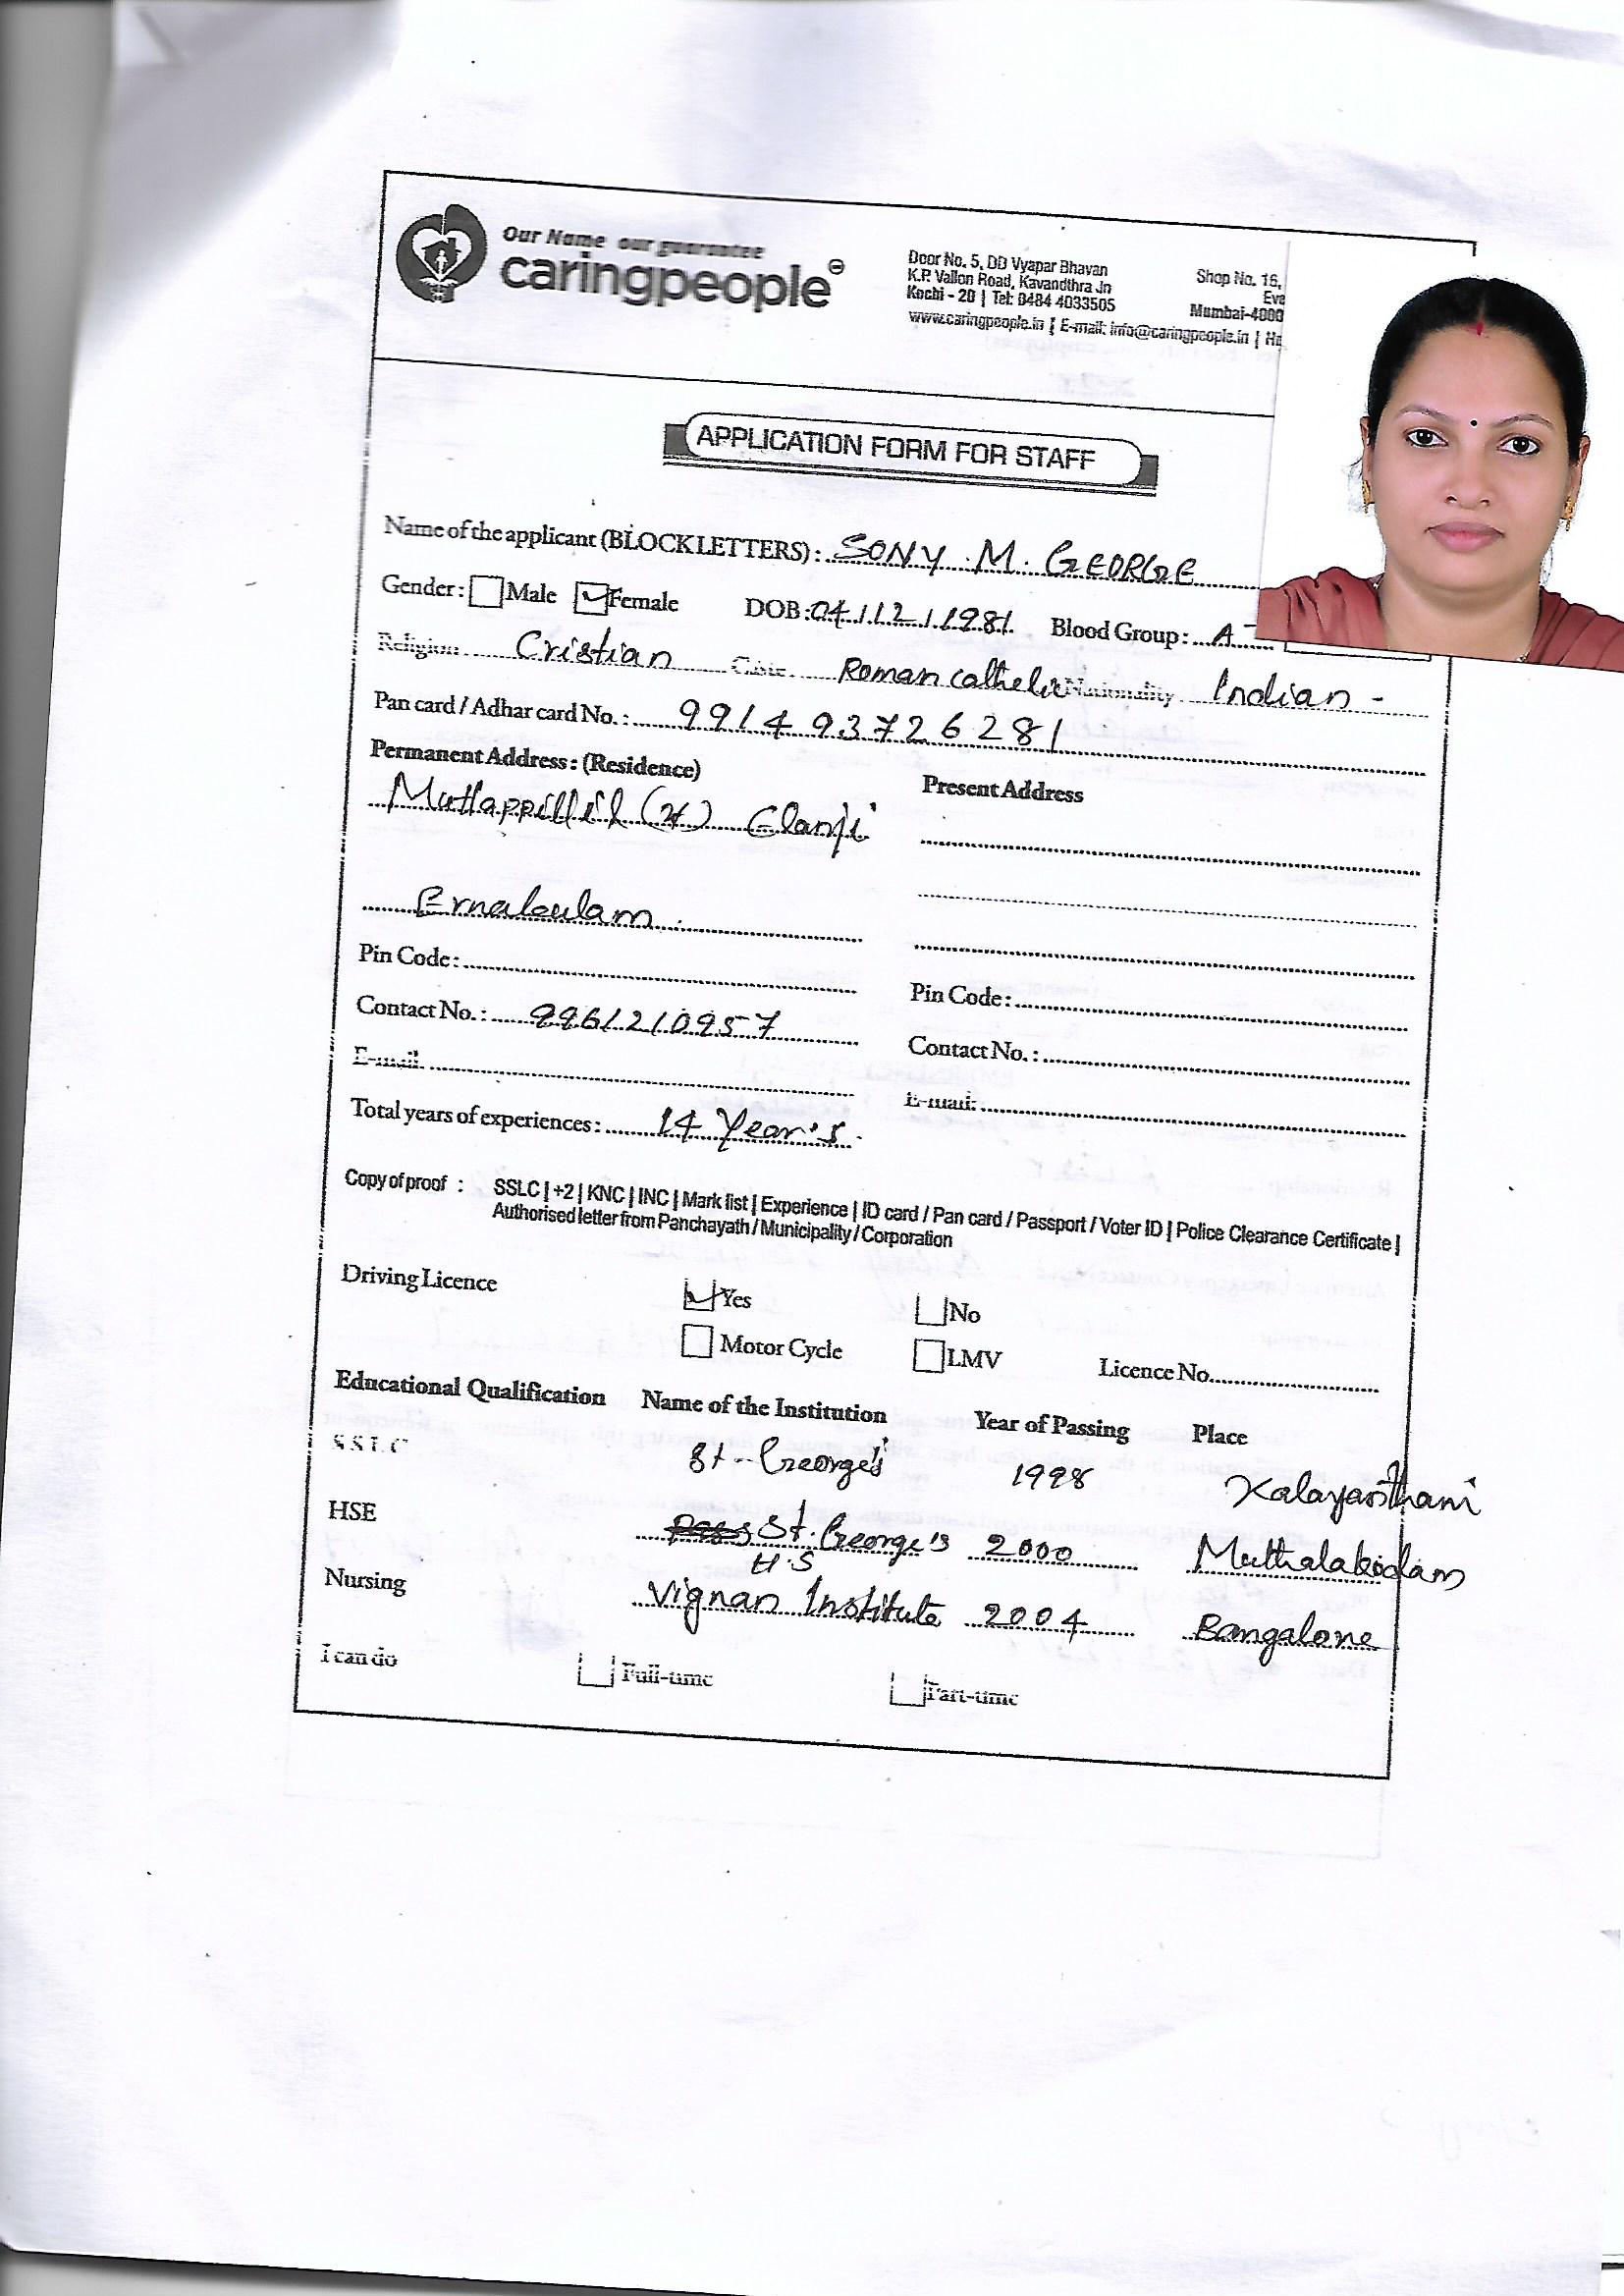 Our Name our guarantee
caringpeople
Door No. 5, DD Vyapar Bhavan
K.P. Vallon Road, Kavandthra Jn
Kochi - 20 | Tel: 0484 4033505
www.caringpeople.in | E-mail: info@caringpeople.in |
Shop No. 16,
Mumbai-4000
APPLICATION FORM FOR STAFF
Name of the applicant (BLOCK LETTERS) : SONY M. GEORGE
Gender : Male Female DOB : 04/12/1981 Blood Group : A
Religion Cristian Caste Roman Nationality Indian -
Pan card / Adhar card No. : 991493726281
Permanent Address : (Residence) Present Address
Elanji
Ernakulam
Pin Code : Pin Code :
Contact No. : 9961210957 Contact No. :
E-mail: E-mail:
Total years of experiences : 14 Year's
Copy of proof : SSLC | +2 | KNC | INC | Mark list | Experience | ID card / Pan card / Passport / Voter ID | Police Clearance Certificate |
Authorised letter from Panchayath / Municipality / Corporation
Driving Licence Yes No
Motor Cycle LMV Licence No.
Educational Qualification Name of the Institution Year of Passing Place
SSLC St-George's 1998 Kalayanthani
HSE St. George's 2000 Muthalakodam
H.S
Nursing Vignan Institute 2004 Bangalore
I can do Full-time Part-time